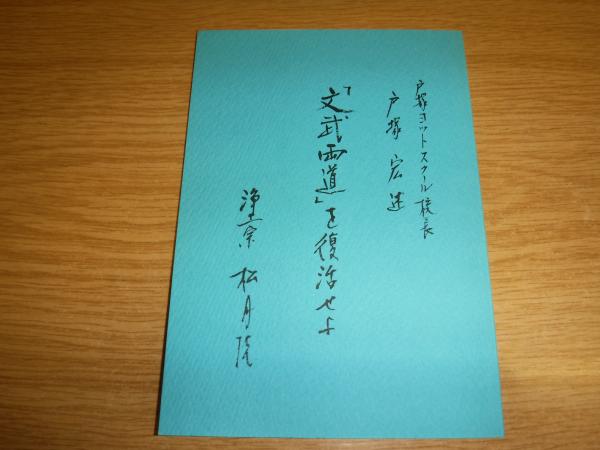 戸塚ヨットスクール校長
戸塚宏述
「文武両道」を復活せよ
浄土宗 松月院